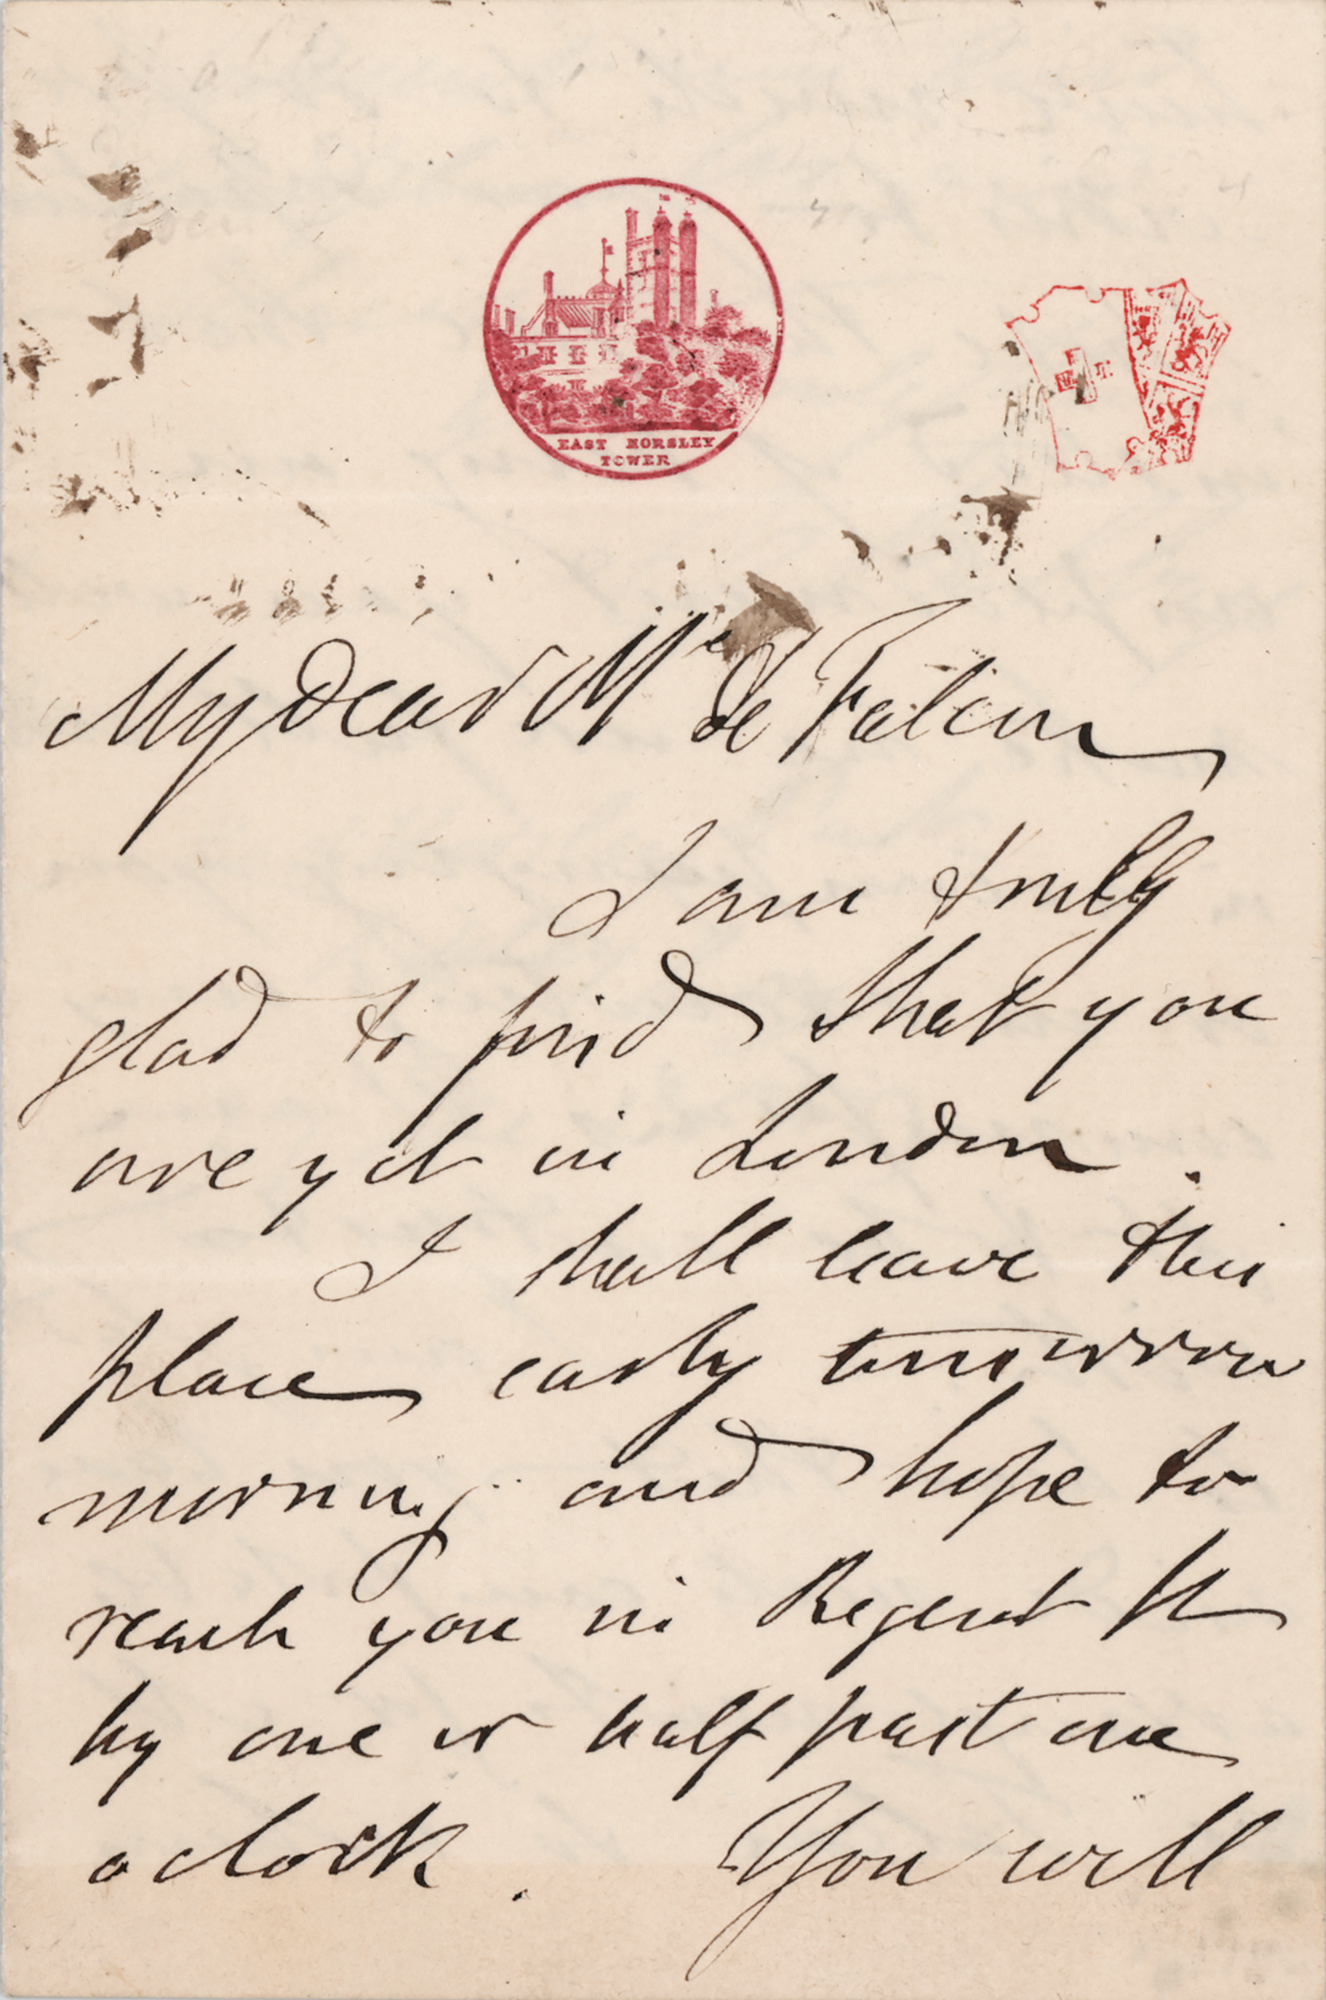 EAST HORSLEY
TOWER
My dear Me de Falcon
I am truly
glad to find that you
are yet in London.
I shall leave this
place early tomorrow
morning and hope to
reach you in Regent St
by one or half past one
oclock. You will